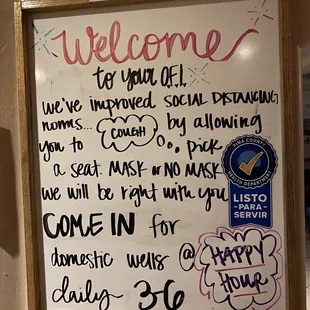 Welcome
to your O.F.I.
we've improved SOCIAL DISTANCING
norms... COUGH by allowing
you to pick
a seat. MASK or NO MASK
we will be right with you
COME IN for
domestic wells @ HAPPY HOUR
daily 3-6
PIMA COUNTY
HEALTH DEPARTMENT
LISTO
-PARA-
SERVIR